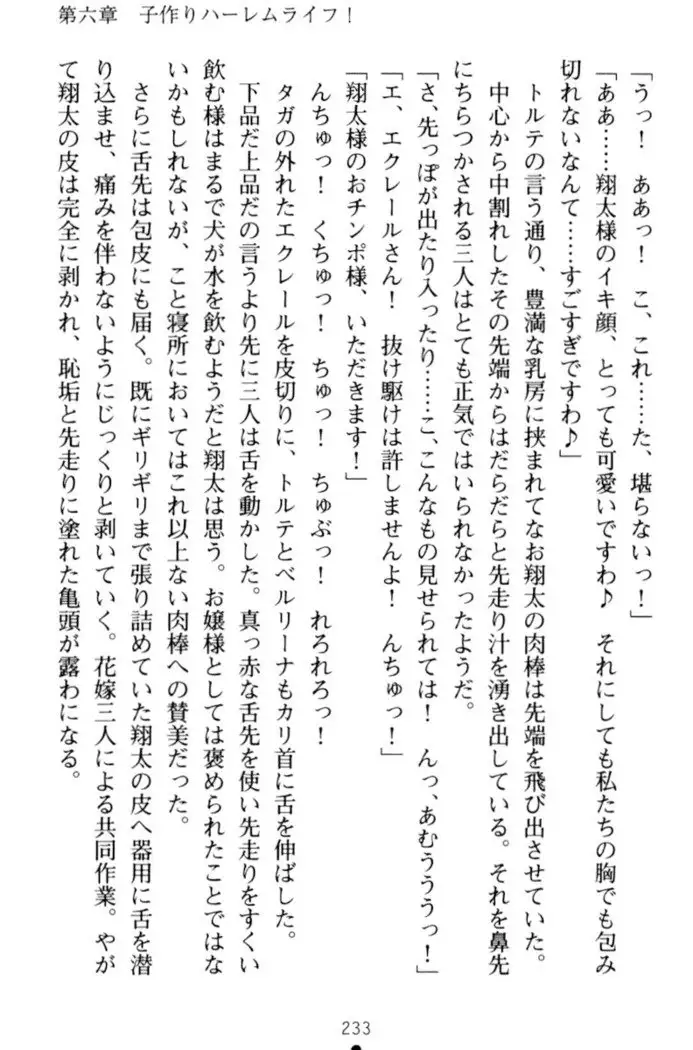 第六章　子作りハーレムライフ！
「うっ！　ああっ！　こ、これ……た、堪らないっ！」
「ああ……翔太様のイキ顔、とっても可愛いですわ♪　それにしても私たちの胸でも包み
切れないなんて……すごすぎですわ♪」
　トルテの言う通り、豊満な乳房に挟まれてなお翔太の肉棒は先端を飛び出させていた。
　中心から中割れしたその先端からはだらだらと先走り汁を湧き出している。それを鼻先
にちらつかされる三人はとても正気ではいられなかったようだ。
「さ、先っぽが出たり入ったり……こ、こんなもの見せられては！　んっ、あむうううっ！」
「エ、エクレールさん！　抜け駆けは許しませんよ！　んちゅっ！」
「翔太様のおチンポ様、いただきます！」
　んちゅっ！　くちゅっ！　ちゅっ！　ちゅぶっ！　れろれろっ！
　タガの外れたエクレールを皮切りに、トルテとベルリーナもカリ首に舌を伸ばした。
　下品だ上品だの言うより先に三人は舌を動かした。真っ赤な舌先を使い先走りをすくい
飲む様はまるで犬が水を飲むようだと翔太は思う。お嬢様としては褒められたことではな
いかもしれないが、こと寝所においてはこれ以上ない肉棒への賛美だった。
　さらに舌先は包皮にも届く。既にギリギリまで張り詰めていた翔太の皮へ器用に舌を潜
り込ませ、痛みを伴わないようにじっくりと剥いていく。花嫁三人による共同作業。やが
て翔太の皮は完全に剥かれ、恥垢と先走りに塗れた亀頭が露わになる。
233